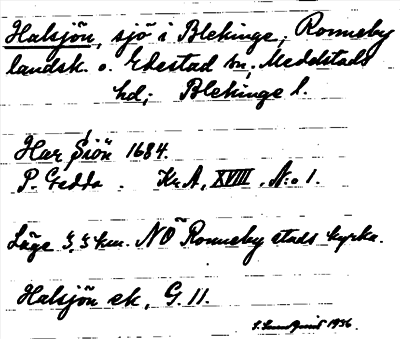 Halsjön, sjö i Blekinge; Ronneby
landsk. o. Edestad sn, Medelstads
hd; Blekinge l.
Har Siön 1684.
P. Gedda. Kr. A, XVIII. N:o 1.
Läge 3,5 km. NO Ronneby stads kyrka.
Halsjön ek, G. 11.
1936.